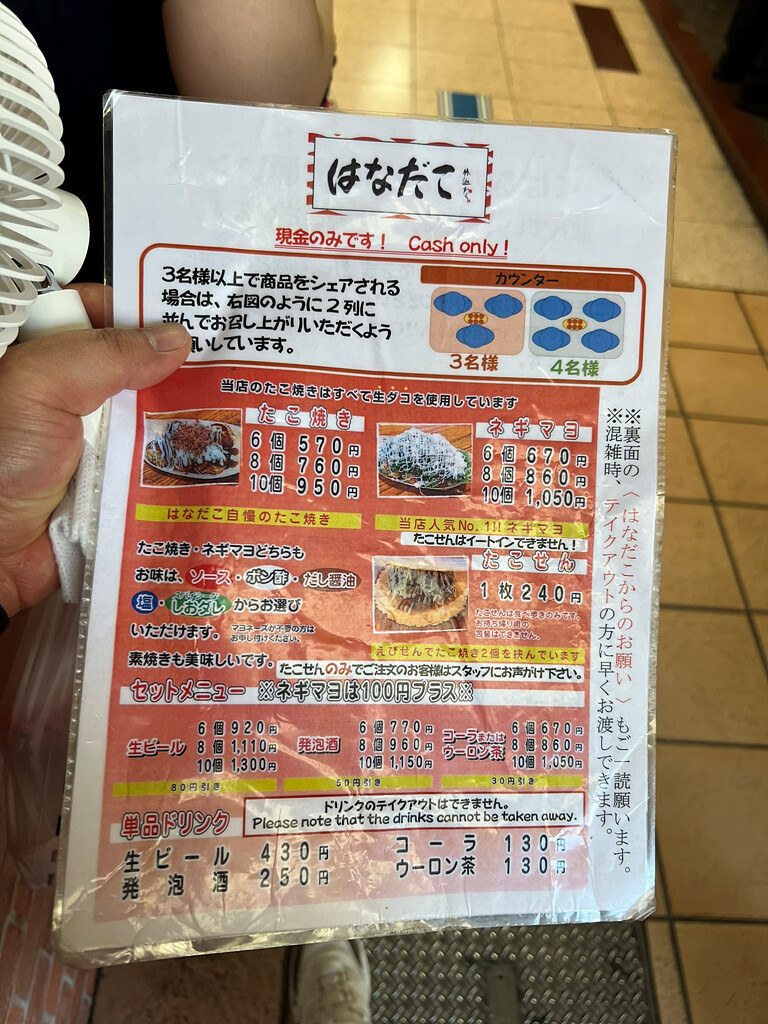 はなだこ
現金のみです！ Cash only！
3名様以上で商品をシェアされる
場合は、右図のように2列に
並んでお召し上がりいただくよう
願いしています。
カウンター
3名様
4名様
当店のたこ焼きはすべて生ダコを使用しています
たこ焼き
6個 570円
8個 760円
10個 950円
はなだこ自慢のたこ焼き
ネギマヨ
6個 670円
8個 860円
10個 1,050円
当店人気No.1!!ネギマヨ
たこせんはイートインできません！
たこ焼き・ネギマヨどちらも
お味は、ソース・ポン酢・だし醤油
塩・しおダレ からお選び
いただけます。 マヨネーズが不要の方は
お申し付けください。
素焼きも美味しいです。
たこせん
1枚240円
たこせんは食べ歩きのみです。
お持ち帰り用の
包装はできません。
えびせんでたこ焼き2個を挟んでいます
たこせんのみでご注文のお客様はスタッフにお声がけ下さい。
セットメニュー ※ネギマヨは100円プラス※
生ビール
6個 920円
8個 1,110円
10個 1,300円
80円引き
発泡酒
6個 770円
8個 960円
10個 1,150円
50円引き
コーラまたは
ウーロン茶
6個 670円
8個 860円
10個 1,050円
30円引き
単品ドリンク
ドリンクのテイクアウトはできません。
Please note that the drinks cannot be taken away.
生ビール 430円
発泡酒 250円
コーラ 130円
ウーロン茶 130円
※裏面の〈はなだこからのお願い〉もご一読願います。
※混雑時、テイクアウトの方に早くお渡しできます。